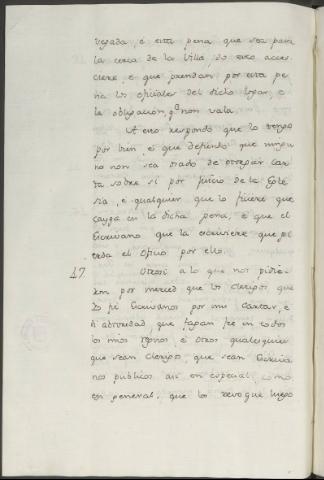 vegada, è esta pena que sea para
la cerca de la Villa, do esto acaes-
ciere, è que prendan por esta pe
na los oficiales del dicho logar, è
la obligacion, q.e non vala.
A esto respondo que lo tengo
por bien è que defiendo que ningu
no non sea osado de otorgar Car
ta sobre si por juicio de la Egle
sia, è qualquier que lo ficiere que
cayga en la dicha pena, è que el
Escrivano que la escriviere que pi
erda el Oficio por ello.
47 Otrosi a lo que nos pidie-
ron por merced que los clerigos que
Yo fiz Escrivanos por mi Cartar, è
è abtoridad, que fagan fee en todos
los mios regnos, è otros qualesquier
que sean clerigos, que sean Escriva
nos publicos asi en especial, como
en general, que los revoque luego